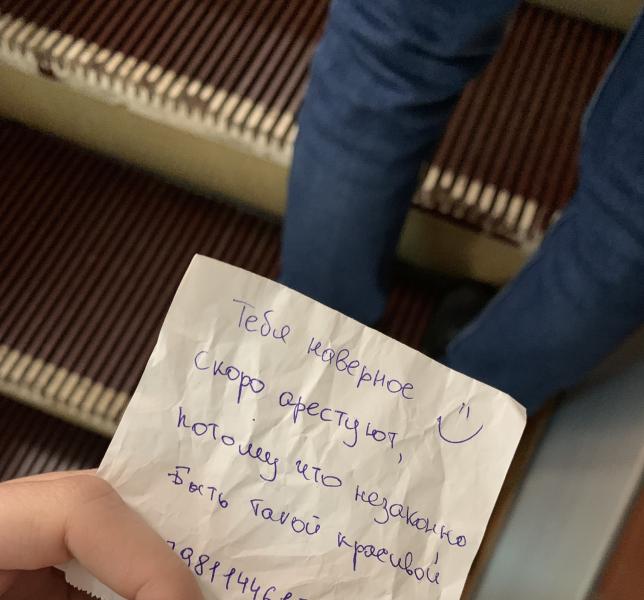 Тебя наверное
Скоро арестуют,
потому что незаконно
Быть такой красивой!